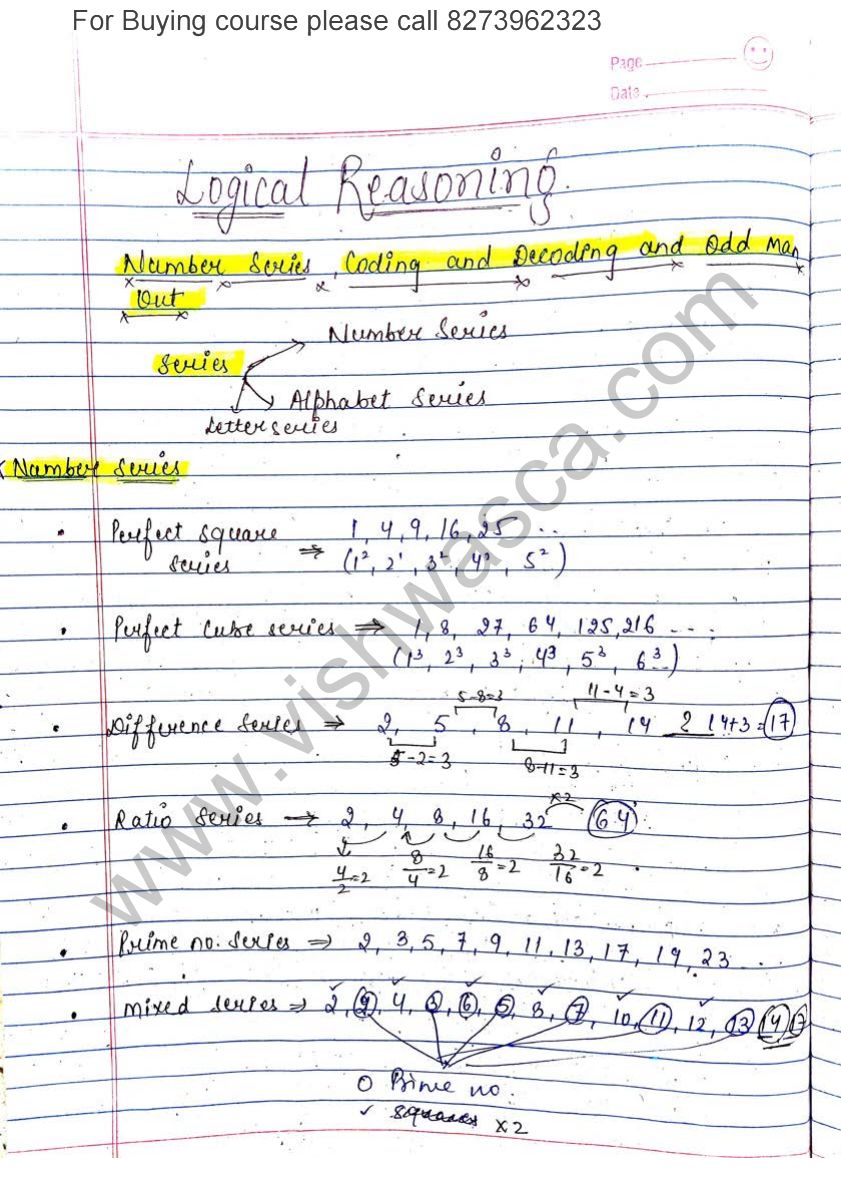 For Buying course please call 8273962323
Page
Date
Logical Reasoning.
Number Series, Coding and Decoding and Odd Man
Out
Number Series
Series
Alphabet Series
Letter series
Number Series
• Perfect square ⇒ 1, 4, 9, 16, 25 ...
series (1², 2¹, 3², 4², 5²)
• Perfect Cube series ⇒ 1, 8, 27, 64, 125, 216 ----
(1³, 2³, 3³, 4³, 5³, 6³..)
5-8=3 11-4=3
• Difference Series ⇒ 2, 5, 8, 11, 14 2 14+3=17
5-2=3 8-11=3
×2
• Ratio Series → 2, 4, 8, 16, 32 64
4/2=2 8/4=2 16/8=2 32/16=2
• Prime no. Series ⇒ 2, 3, 5, 7, 9, 11, 13, 17, 19, 23 ...
• Mixed series ⇒ 2, 2, 4, 3, 6, 5, 8, 7, 10, 11, 12, 13 14 17
O Prime no.
✓ squares ×2
www.vishwasca.com